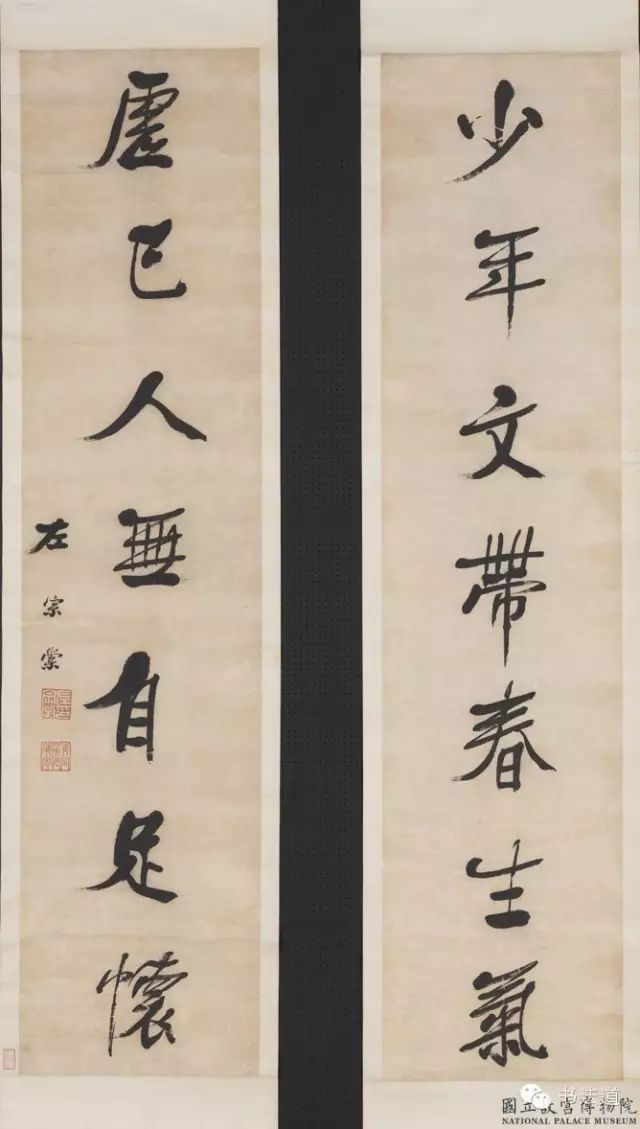 少年文帶春生氣
虛己人無自足懷
左宗棠
书法道
國立故宮博物院
NATIONAL PALACE MUSEUM